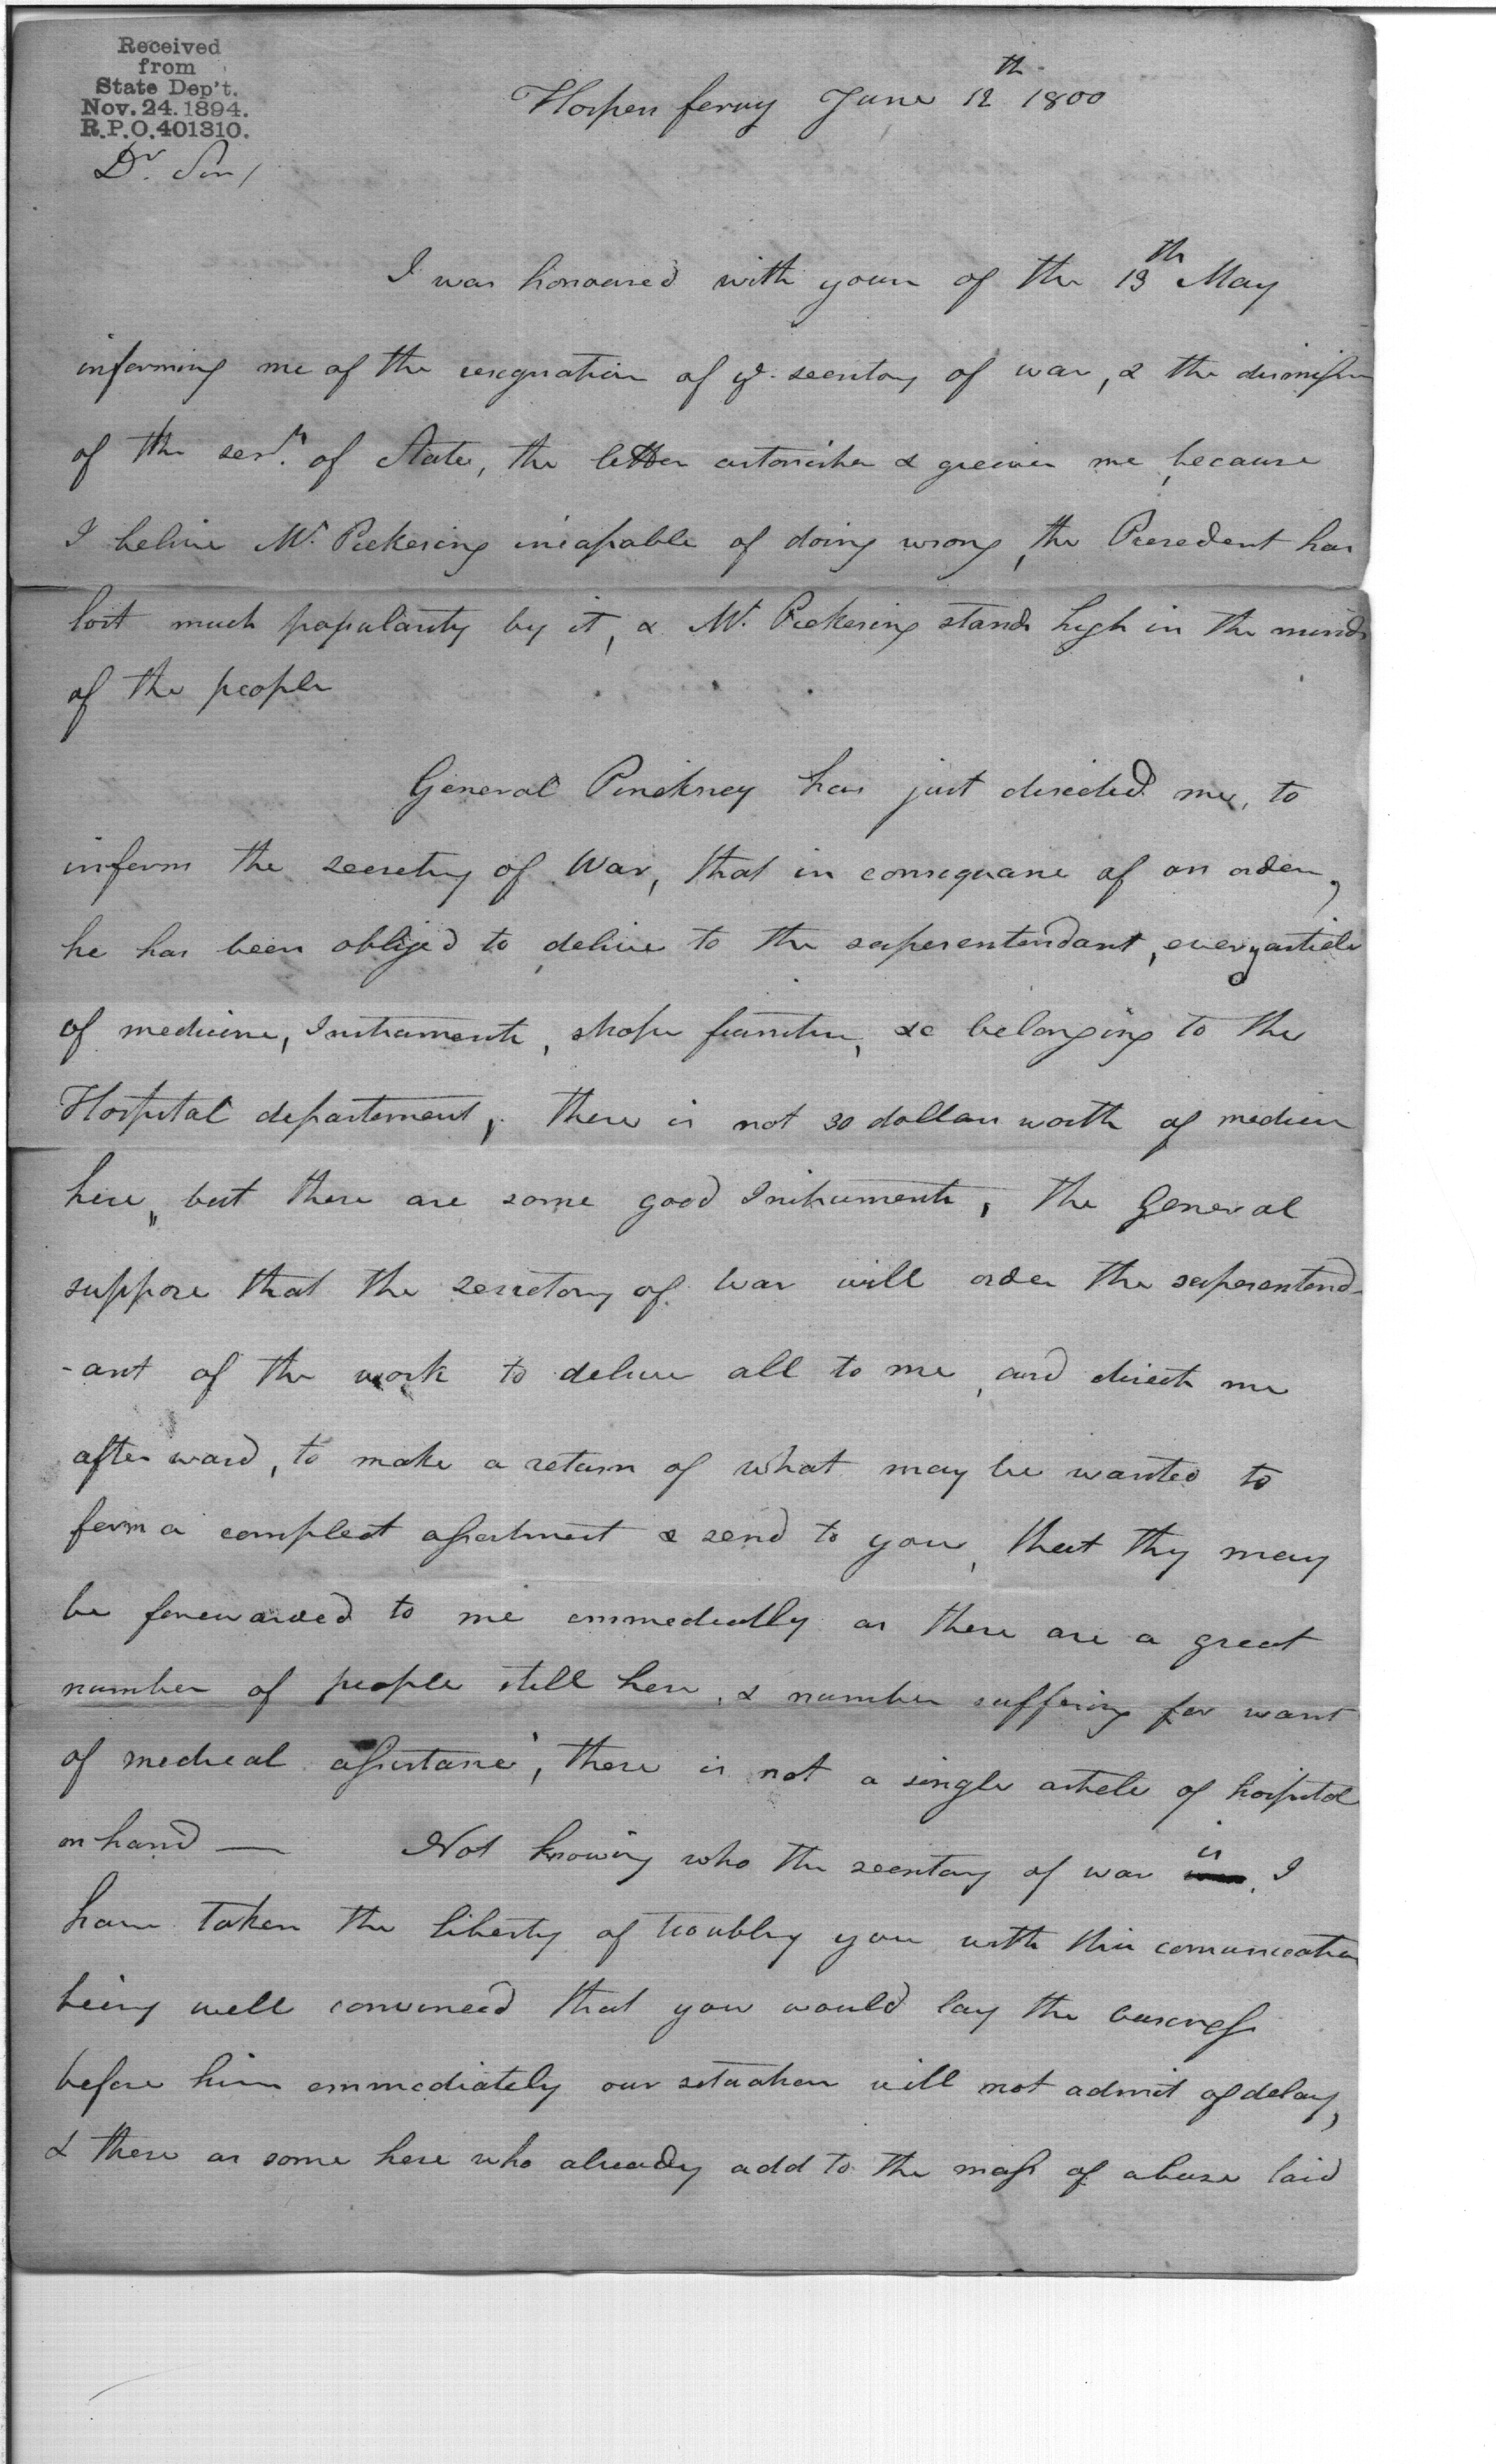 Received
from
State Dep't.
Nov. 24. 1894.
R.P.O. 401310.
Harpers ferry June 12th 1800
Dr. Sir/
I was honoured with yours of the 13th May
informing me of the resignation of ye. secretary of war, & the dismission
of the secry. of State, the letter astonishes & greives me, because
I belive Mr. Pickering incapable of doing wrong, the Presedent has
lost much popularity by it, & Mr. Pickering stands high in the minds
of the people
General Pinckney has just directed me, to
inform the secretry of War, that in consequance of an order,
he has been obliged to delive to the superentendant, every article
of medicine, Instruments, shope furniture, &c belonging to the
Hospital departement, there is not 30 dollars worth of medicin
here, but there are some good Instruments, the General
suppose that the secretary of war will order the superentend-
-ant of the work to deliver all to me, and direct me
after ward, to make a return of what may be wanted to
form a compleat assortment & send to you, that thy may
be forewarded to me emmediatly as there are a great
number of people still here, & number suffering for want
of medical assistance, there is not a single article of hospital
on hand — Not knowing who the secretary of war is, I
have taken the liberty of troubling you with this comunication
being well convinced that you would lay the buseness
before him emmediately our setuation will not admit of delay,
& there ar some here who already add to the mass of abuse laid